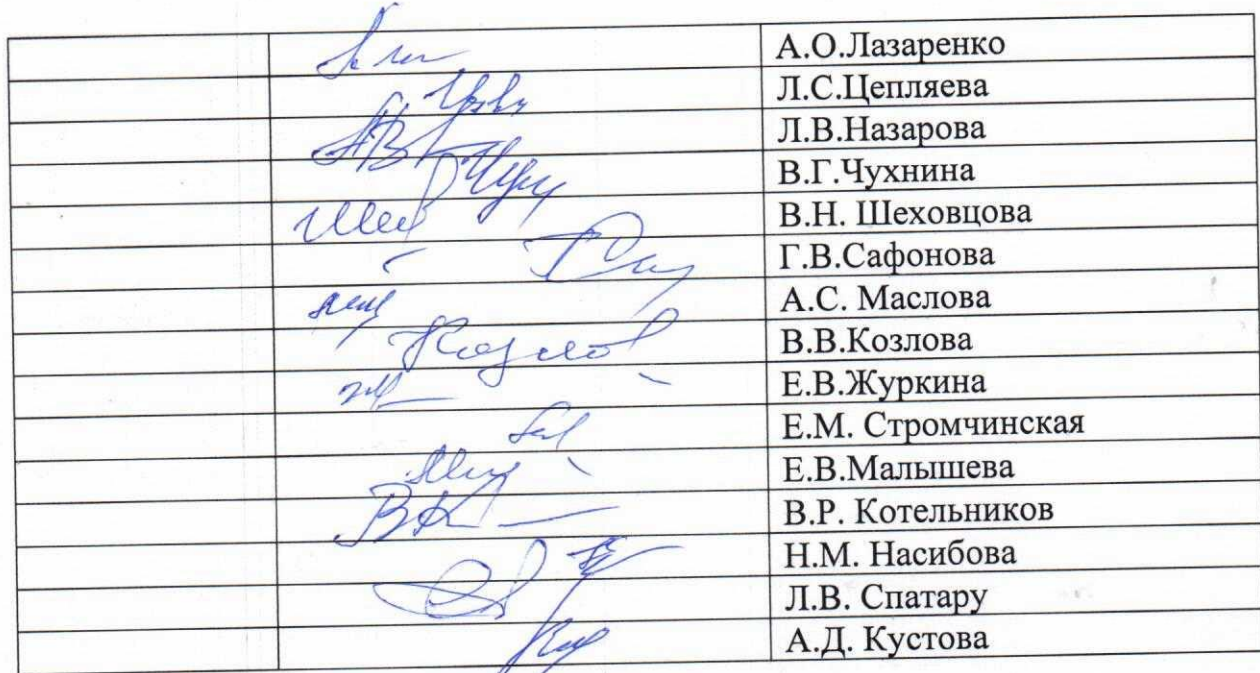 А.О.Лазаренко
Л.С.Цепляева
Л.В.Назарова
В.Г.Чухнина
В.Н. Шеховцова
Г.В.Сафонова
А.С. Маслова
В.В.Козлова
Е.В.Журкина
Е.М. Стромчинская
Е.В.Малышева
В.Р. Котельников
Н.М. Насибова
Л.В. Спатару
А.Д. Кустова